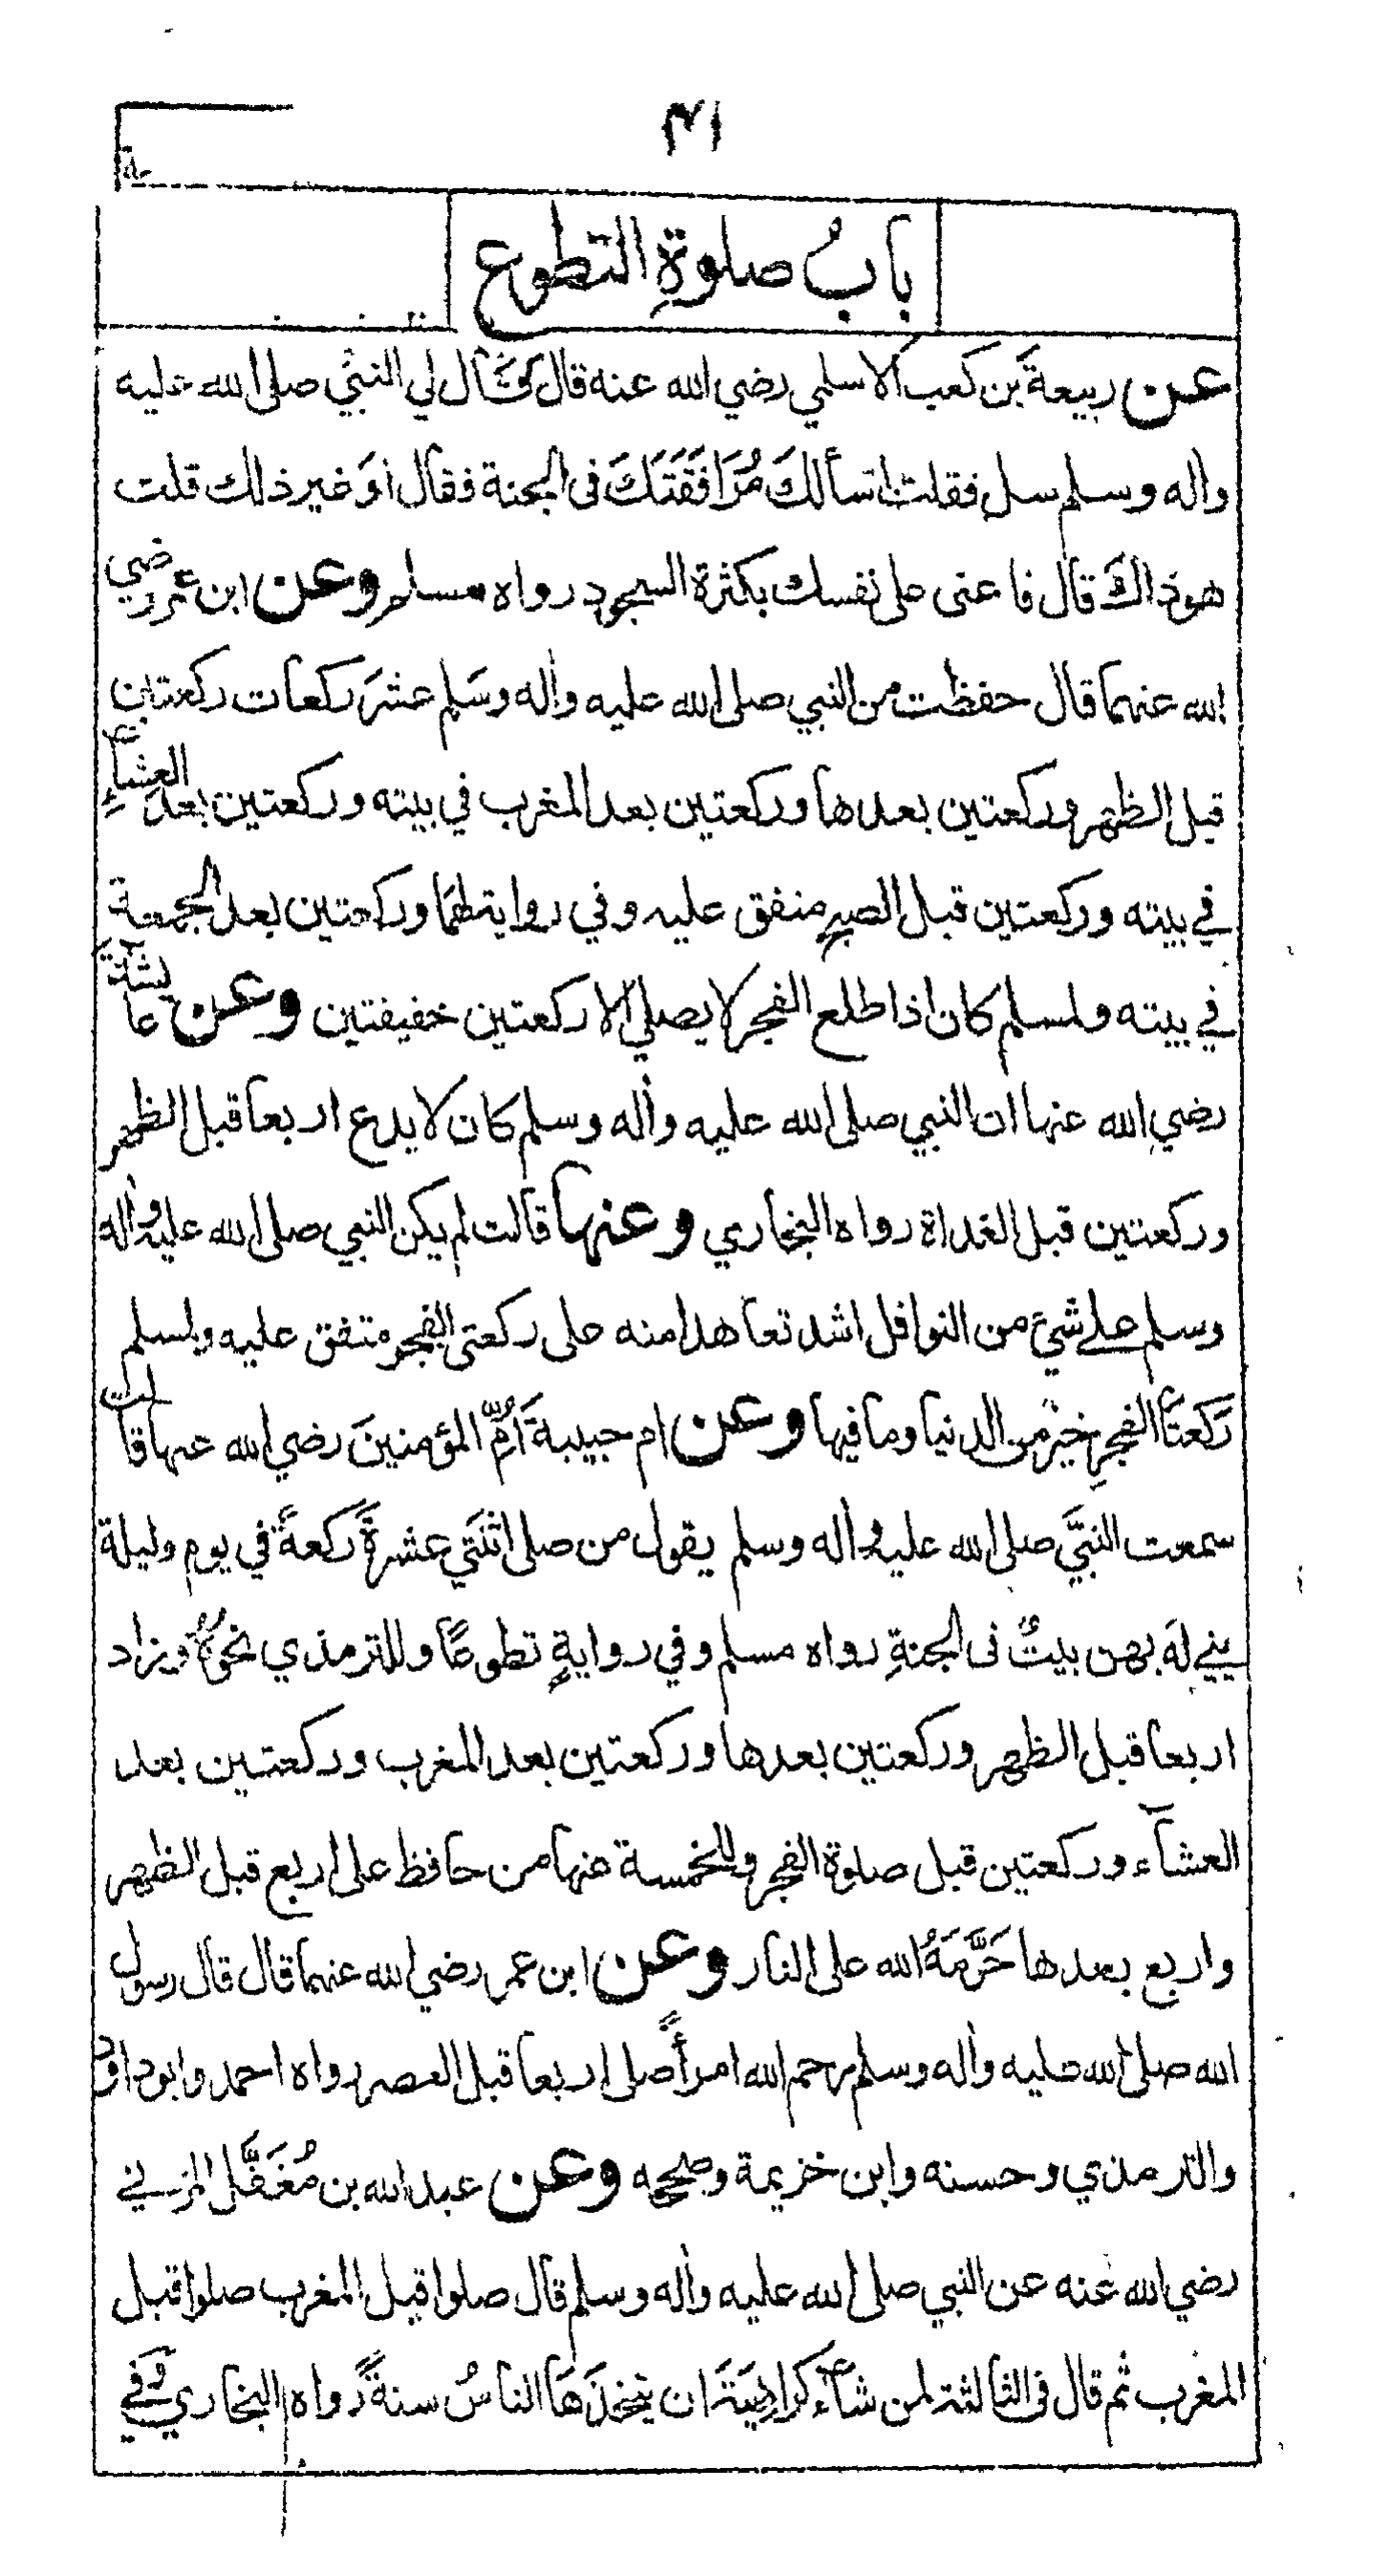 ٤١
باب صلوةِ التطوع
عن ربيعةَ بن كعب الاسلمي رضي الله عنه قال قال لي النبي صلى الله عليه
واٰله وسلم سل فقلت اسألكَ مُرَافَقَتَكَ فى الجنة فقال اَوَ غير ذلك قلت
هو ذاكَ قال فاعنى على نفسك بكثرة السجود رواه مسلم وعن ابن عمر رضي
الله عنهما قال حفظت من النبي صلى الله عليه واٰله وسَلم عشرَ ركعات ركعتين
قبل الظهر وركعتين بعدها وركعتين بعد المغرب في بيته وركعتين بعد العشآءِ
في بيته وركعتين قبل الصبح متفق عليه وفي رواية لهما وركعتين بعد الجمعة
في بيته ولمسلم كان اذا طلع الفجر لا يصلي الا ركعتين خفيفتين وعن عائشةَ
رضي الله عنها ان النبي صلى الله عليه واٰله وسلم كان لا يدع اربعا قبل الظهر
وركعتين قبل الغداة رواه البخاري وعنها قالت لم يكن النبي صلى الله عليه واٰله
وسلم علے شئ من النوافل اشد تعاهدا منه على ركعتى الفجر متفق عليه ولمسلم
رَكعتَا الفجرِ خيرٌ من الدنيا وما فيها وعن ام حبيبةَ اُمِّ المؤمنينَ رضي الله عنها قالت
سمعت النبيَّ صلى الله عليه واٰله وسلم يقول من صلى اثنَتَي عشرةَ ركعةً في يوم وليلة
بني لهَ بهن بيتٌ فى الجنةِ رواه مسلم وفي روايةٍ تطوعًا وللترمذي نحوُهٗ وزاد
اربعا قبل الظهر وركعتين بعدها وركعتين بعد المغرب وركعتين بعد
العشآء وركعتين قبل صلوة الفجر وللخمسة عنها من حافظ على اربع قبل الظهر
واربع بعدها حَرَّمَهُ الله على النار وعن ابن عمر رضي الله عنهما قال قال رسول
الله صلى الله عليه واٰله وسلم رحم الله امرأً صلى اربعا قبل العصر رواه احمد وابوداود
والترمذي وحسنه وابن خزيمة وصححه وعن عبد الله بن مُغَفَّل المزني
رضي الله عنه عن النبي صلى الله عليه واٰله وسلم قال صلوا قبل المغرب صلوا قبل
المغرب ثم قال فى الثالثة لمن شآءَ كراهِيَةَ ان يتخذَهَا الناسُ سنةً رواه البخاري وَفي